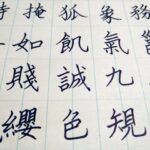 掩狐象務
如飢氣
賤誠九
纓色規